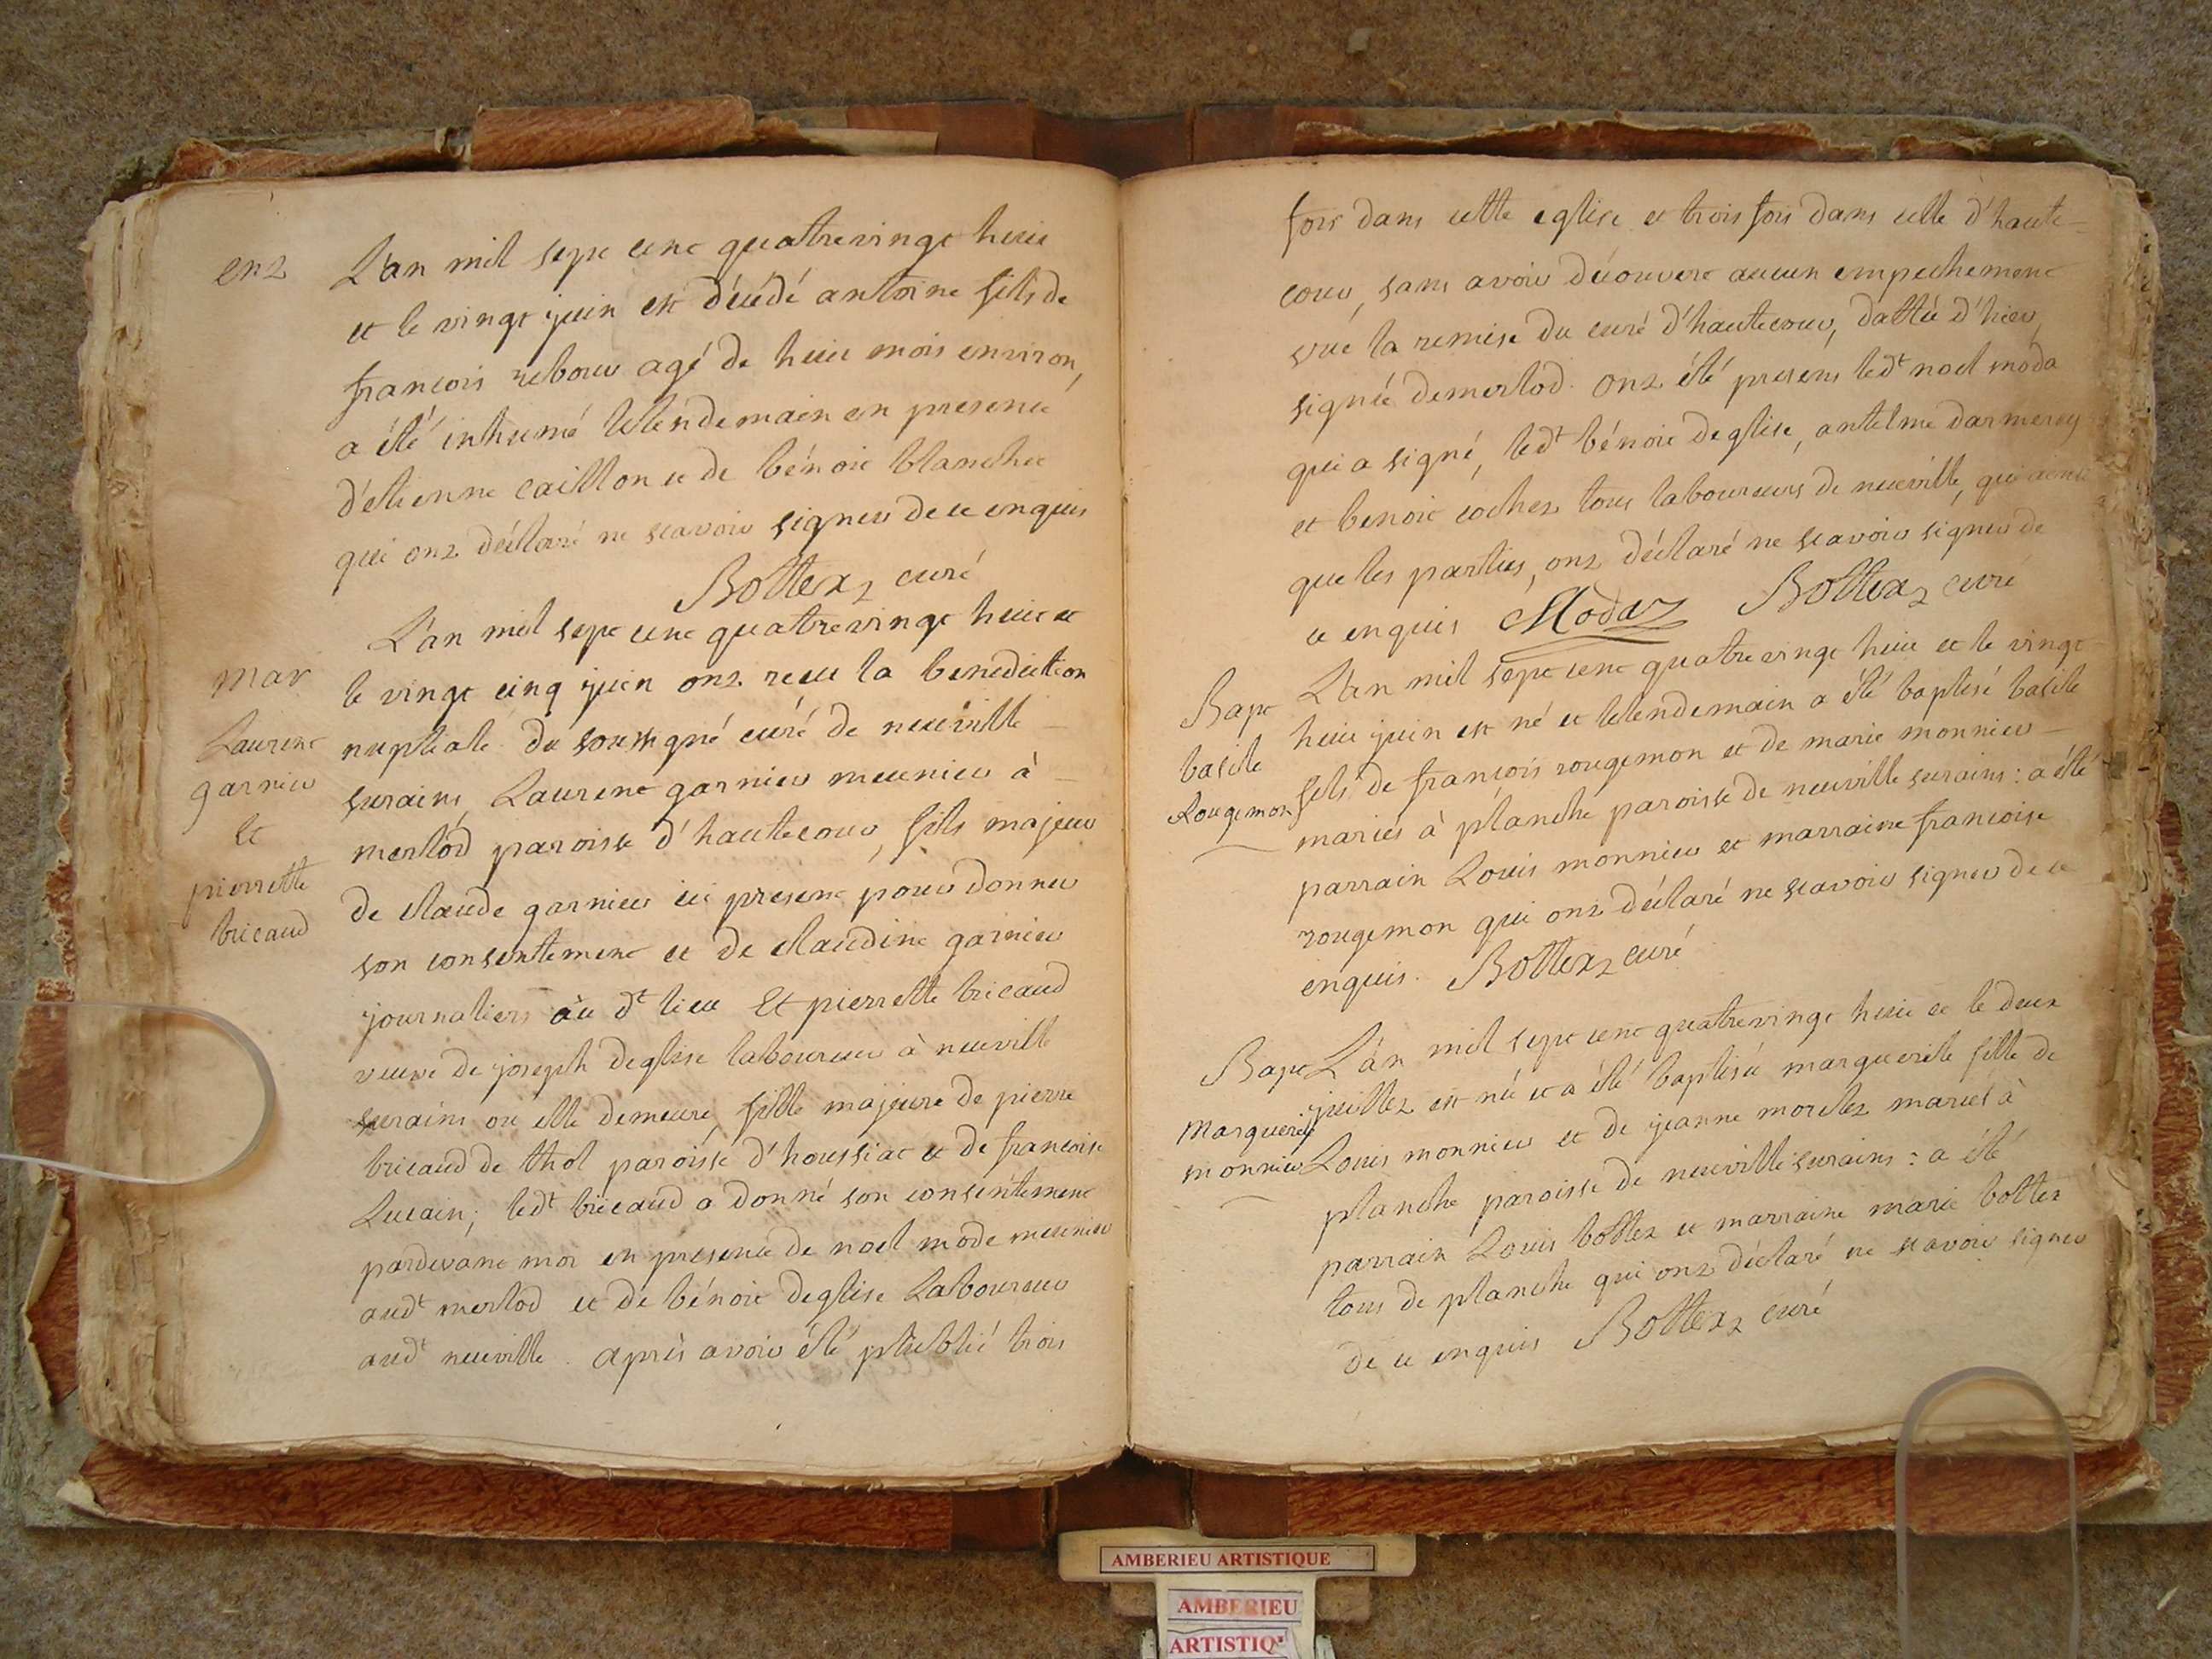 ent
L'an mil sept cent quatrevingt huit
et le vingt juin est décédé antoine fils de
francois rebour agé de huit mois environ,
a été inhumé lelendemain en presence
d'etienne caillon et de bénoit blanchet
qui ont déclaré ne scavoir signer de ce enquis
Bottex, curé
mar
Laurent
garnier
et
pierrette
bricaud
L'an mil sept cent quatrevingt huit et
le vingt cinq juin ont recu la benediction
nuptiale du soussigné curé de neuville
surains, Laurent garnier meunier à
merlod paroisse d'hautecour, fils majeur
de claude garnier ici present pour donner
son consentement et de claudine garnier
journaliers au dt lieu Et pierrette bricaud
veuve de joseph deglise laboureur à neuville
surains ou elle demeure, fille majeure de pierre
bricaud de thol paroisse d'houssiat et de francoise
Lucain; ledt bricaud a donné son consentement
pardevant moi en presence de noel mode meunier
audt merlod et de bénoit deglise Laboureur
audt neuville. après avoir été publié trois
fois dans cette eglise et trois fois dans celle d'haute-
cour, sans avoir découvert aucun empechement
vue la remise du curé d'hautecour, dattée d'hier,
signée demerlod. ont été presens ledt noel moda
qui a signé, ledt bénoit deglise, antelme darmency
et benoit cochet tous laboureurs de neuville, qui ainsi
que les parties, ont déclaré ne scavoir signer de
ce enquis Modaz Bottex, curé
Bapt
basile
Rougemon
L'an mil sept cent quatrevingt huit et le vingt
huit juin est né et lelendemain a été baptisé basile
fils de françois rougemon et de marie monnier
mariés à planche paroisse de neuville surains: a été
parrain Louis monnier et marraine francoise
rougemon qui ont déclaré ne scavoir signer de ce
enquis. Bottex, curé
Bapt
marguerite
monnier
L'an mil sept cent quatrevingt huit et le deux
juillet est né et a été baptisée marguerite fille de
Louis monnier et de jeanne morelet mariés à
planche paroisse de neuville surains: a été
parrain Louis bottex et marraine marie bottex
tous de planche qui ont déclaré ne scavoir signer
de ce enquis Bottex, curé
AMBERIEU ARTISTIQUE
AMBERIEU
ARTISTIQ